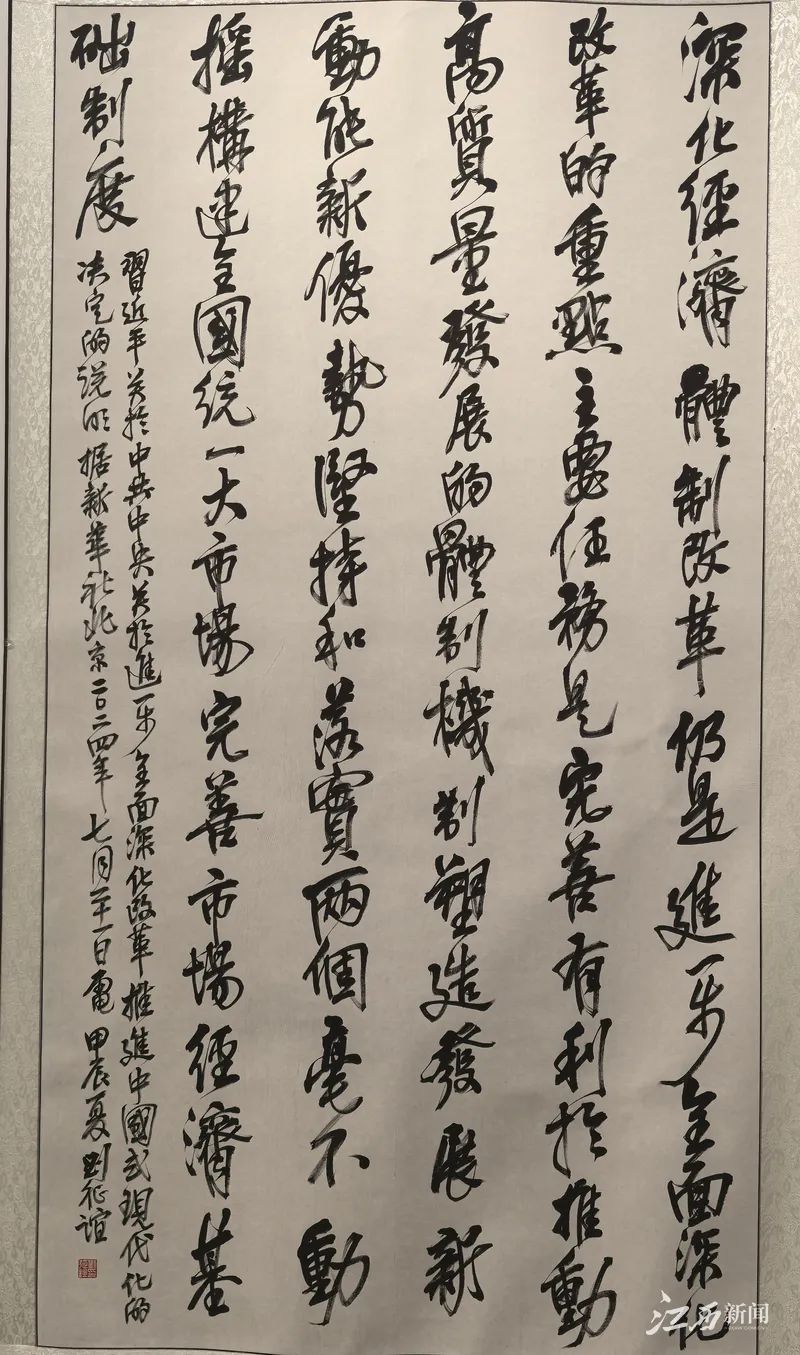 深化經濟體制改革仍是進一步全面深化
改革的重點主要任務是完善有利於推動
高質量發展的體制機制塑造發展新
動能新優勢堅持和落實兩個毫不動
摇構建全國統一大市場完善市場經濟基
础制度
習近平关於中共中央关於進一步全面深化改革推進中國式現代化的
决定的説明据新華社北京二〇二四年七月二十一日電甲辰夏劉征誼
江西新闻